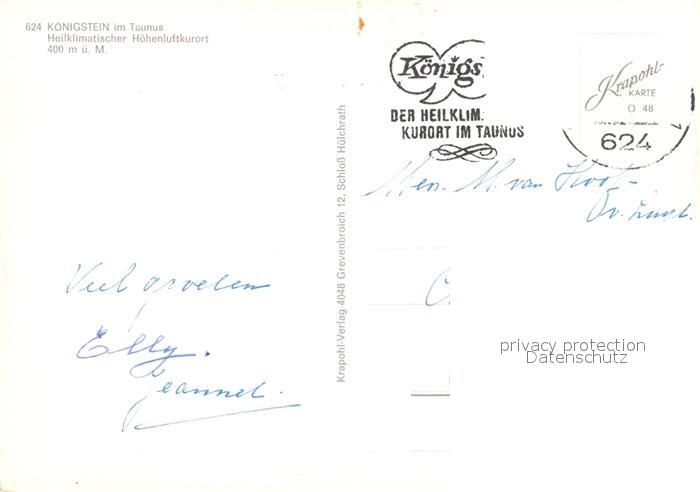 624 KÖNIGSTEIN im Taunus
Heilklimatischer Höhenluftkurort
400 m ü. M.
Königs
DER HEILKLIM.
KURORT IM TAUNUS
Krapohl-
KARTE
O 48
624
Krapohl-Verlag 4048 Grevenbroich 12, Schloß Hülchrath
M. van
Veel groeten
Elly.
Jeannet.
privacy protection
Datenschutz